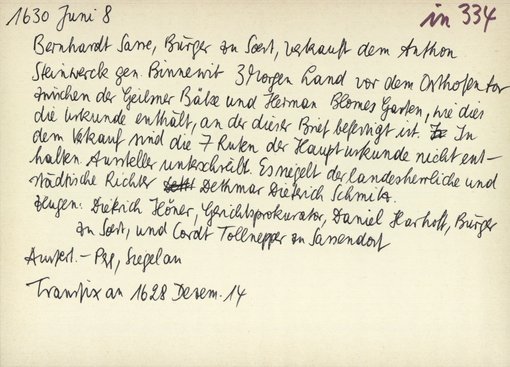 1630 Juni 8
in 334
Bernhardt Sasse, Bürger zu Soest, verkauft dem Anthon
Steinwerck gen. Binnewit 3 Morgen Land vor dem Osthofentor
zwischen der Geilmer Bäke und Herman Blomes Garten, wie dies
die Urkunde enthält, an der dieser Brief befestigt ist. In
dem Verkauf sind die 7 Ruten der Haupturkunde nicht ent-
halten. Aussteller unterschreibt. Es siegelt der landesherrliche und
städtische Richter Dethmar Dietrich Schmitz.
Zeugen: Dietrich Höner, Gerichtsprokurator, Daniel Harhoff, Bürger
zu Soest, und Cordt Tollnepper zu Sassendorf
Ausfert. - Pap, Siegel an
Transfix an 1628 Dezem. 14